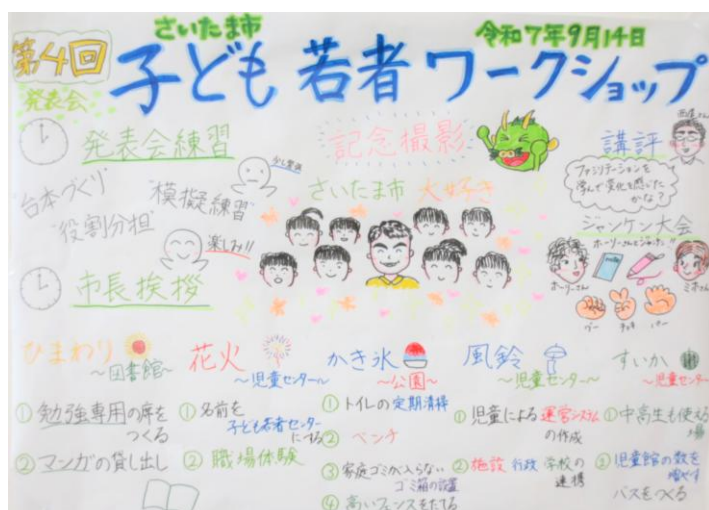 さいたま市
令和7年9月14日
第4回
子ども 若者 ワークショップ
発表会
発表会練習
少し緊張
台本づくり
模擬練習
役割分担
楽しみ!!
市長挨拶
記念撮影
さいたま市 大好き
講評
ファシリテーションを
学んで変化を感じた
かな?
ジャンケン大会
ホーリーさんとジャンケン!!
ホーリーさん
ミホさん
グー チョキ パー
ひまわり
～図書館～
① 勉強専用の席を
つくる
② マンガの貸し出し
花火
～児童センター～
① 名前を
子ども若者センター
にする
② 職場体験
かき氷
～公園～
① トイレの定期清掃
② ベンチ
③ 家庭ゴミが入らない
ゴミ箱の設置
④ 高いフェンスをたてる
風鈴
～児童センター～
① 児童による 運営システム
の作成
② 施設 行政 学校の
連携
すいか
～児童センター～
① 中高生も使える
場
② 児童館の数を
増やす
バスをつくる